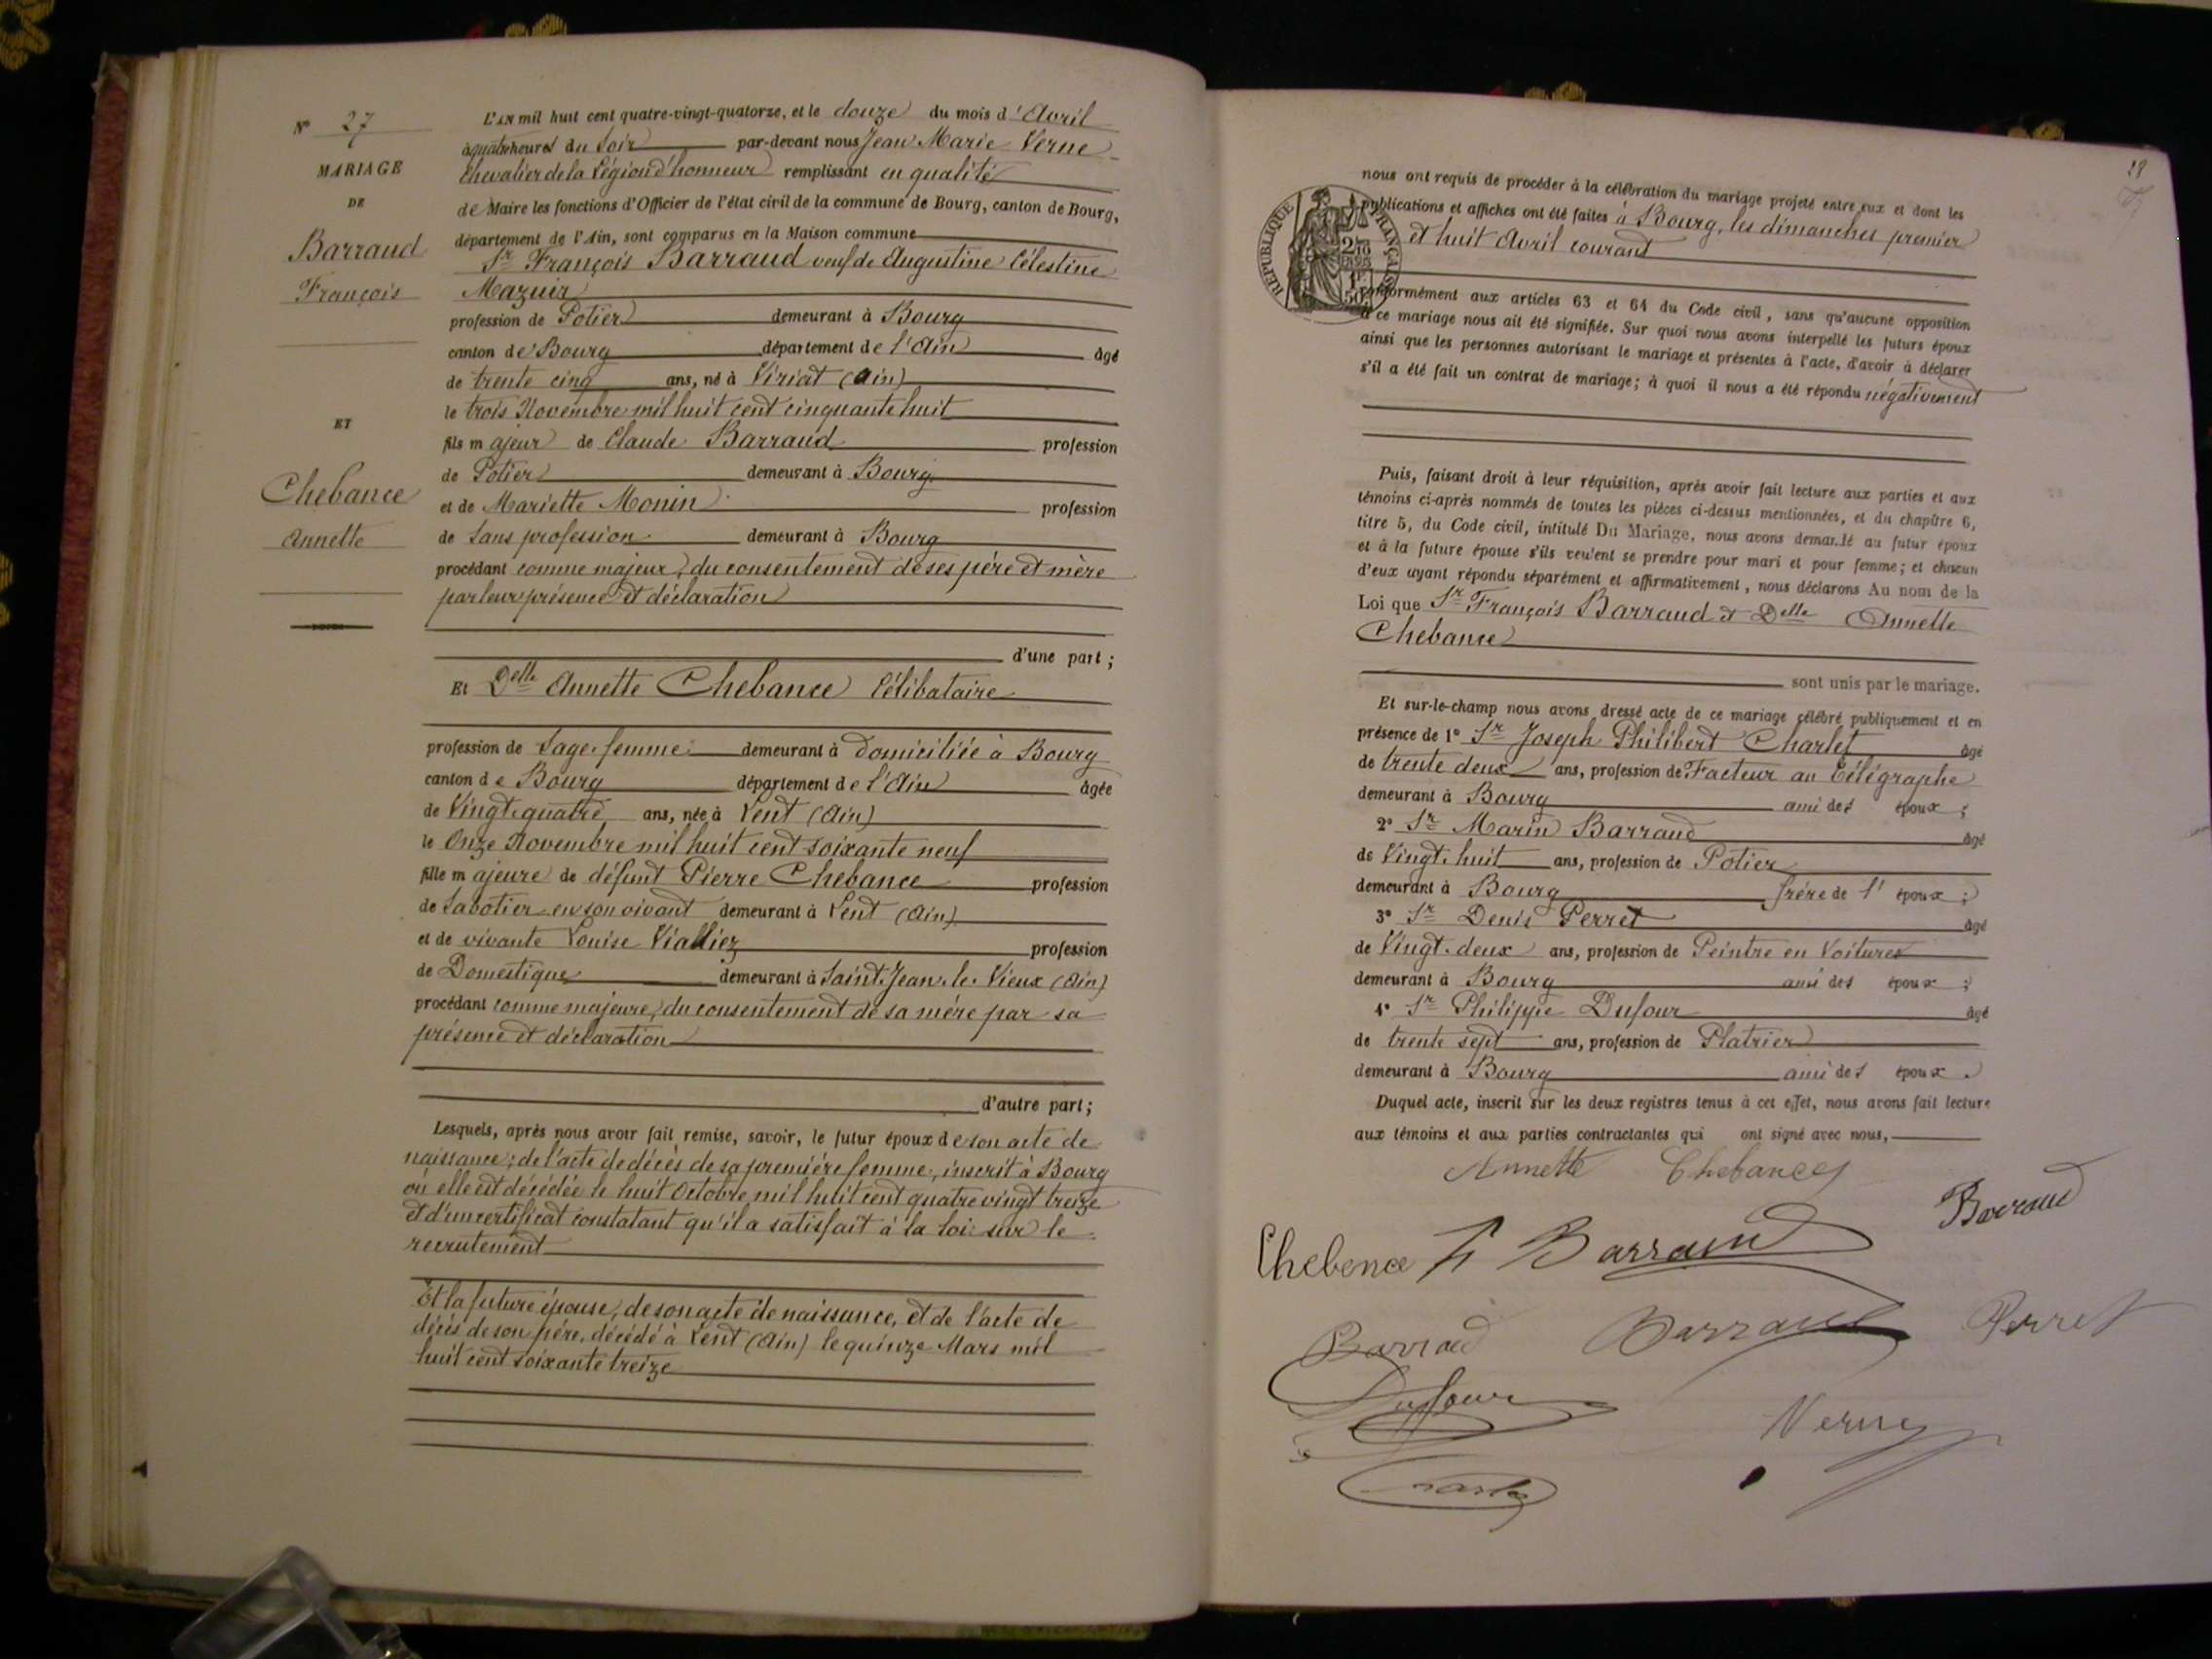 N° 27
MARIAGE
DE
Barraud
François
ET
Chebance
Annette
L'AN mil huit cent quatre-vingt-quatorze, et le douze du mois d'Avril
à quatre heures du Soir par-devant nous Jean Marie Verne
Chevalier de la Légion d'honneur remplissant en qualité
de Maire les fonctions d'Officier de l'état civil de la commune de Bourg, canton de Bourg,
département de l'Ain, sont comparus en la Maison commune
Sr François Barraud veuf de Augustine Célestine
Mazuir
profession de Potier demeurant à Bourg
canton de Bourg département de l'Ain âgé
de trente cinq ans, né à Viriat (Ain)
le trois Novembre mil huit cent cinquante huit
fils majeur de Claude Barraud profession
de Potier demeurant à Bourg
et de Mariette Monin profession
de Sans profession demeurant à Bourg
procédant comme majeur, du consentement de ses père et mère
par leur présence et déclaration
d'une part ;
Et Delle Annette Chebance Célibataire
profession de Sage-femme demeurant à domiciliée à Bourg
canton de Bourg département de l'Ain âgée
de Vingt-quatre ans, née à Lent (Ain)
le Onze Novembre mil huit cent soixante neuf
fille majeure de défunt Pierre Chebance profession
de Sabotier en son vivant demeurant à Lent (Ain)
et de vivante Louise Viallier profession
de Domestique demeurant à Saint-Jean-le-Vieux (Ain)
procédant comme majeure, du consentement de sa mère par sa
présence et déclaration
d'autre part ;
Lesquels, après nous avoir fait remise, savoir, le futur époux de son acte de
naissance ; de l'acte de décès de sa première femme, inscrit à Bourg
où elle est décédée le huit Octobre mil huit cent quatre vingt treize
et d'un certificat constatant qu'il a satisfait à la loi sur le
recrutement
Et la future épouse, de son acte de naissance, et de l'acte de
décès de son père, décédé à Lent (Ain) le quinze Mars mil
huit cent soixante treize
RÉPUBLIQUE FRANÇAISE
nous ont requis de procéder à la célébration du mariage projeté entre eux et dont les
publications et affiches ont été faites à Bourg, les dimanches premier
et huit Avril courant
conformément aux articles 63 et 64 du Code civil, sans qu'aucune opposition
à ce mariage nous ait été signifiée. Sur quoi nous avons interpellé les futurs époux
ainsi que les personnes autorisant le mariage et présentes à l'acte, d'avoir à déclarer
s'il a été fait un contrat de mariage ; à quoi il nous a été répondu négativement
Puis, faisant droit à leur réquisition, après avoir fait lecture aux parties et aux
témoins ci-après nommés de toutes les pièces ci-dessus mentionnées, et du chapitre 6,
titre 5, du Code civil, intitulé Du Mariage, nous avons demandé au futur époux
et à la future épouse s'ils veulent se prendre pour mari et pour femme ; et chacun
d'eux ayant répondu séparément et affirmativement, nous déclarons Au nom de la
Loi que Sr François Barraud et Delle Annette
Chebance
sont unis par le mariage.
Et sur-le-champ nous avons dressé acte de ce mariage célébré publiquement et en
présence de 1° Sr Joseph Philibert Charlet âgé
de trente deux ans, profession de Facteur au Télégraphe
demeurant à Bourg ami des époux ;
2° Sr Marin Barraud âgé
de Vingt-huit ans, profession de Potier
demeurant à Bourg frère de l'époux ;
3° Sr Denis Perret âgé
de Vingt-deux ans, profession de Peintre en Voitures
demeurant à Bourg ami des époux ;
4° Sr Philippe Dufour âgé
de trente sept ans, profession de Platrier
demeurant à Bourg ami des époux.
Duquel acte, inscrit sur les deux registres tenus à cet effet, nous avons fait lecture
aux témoins et aux parties contractantes qui ont signé avec nous,
Annette Chebance
Barraud
Chebence F Barraud
Barraud Barraud Perret
Dufour
Verne